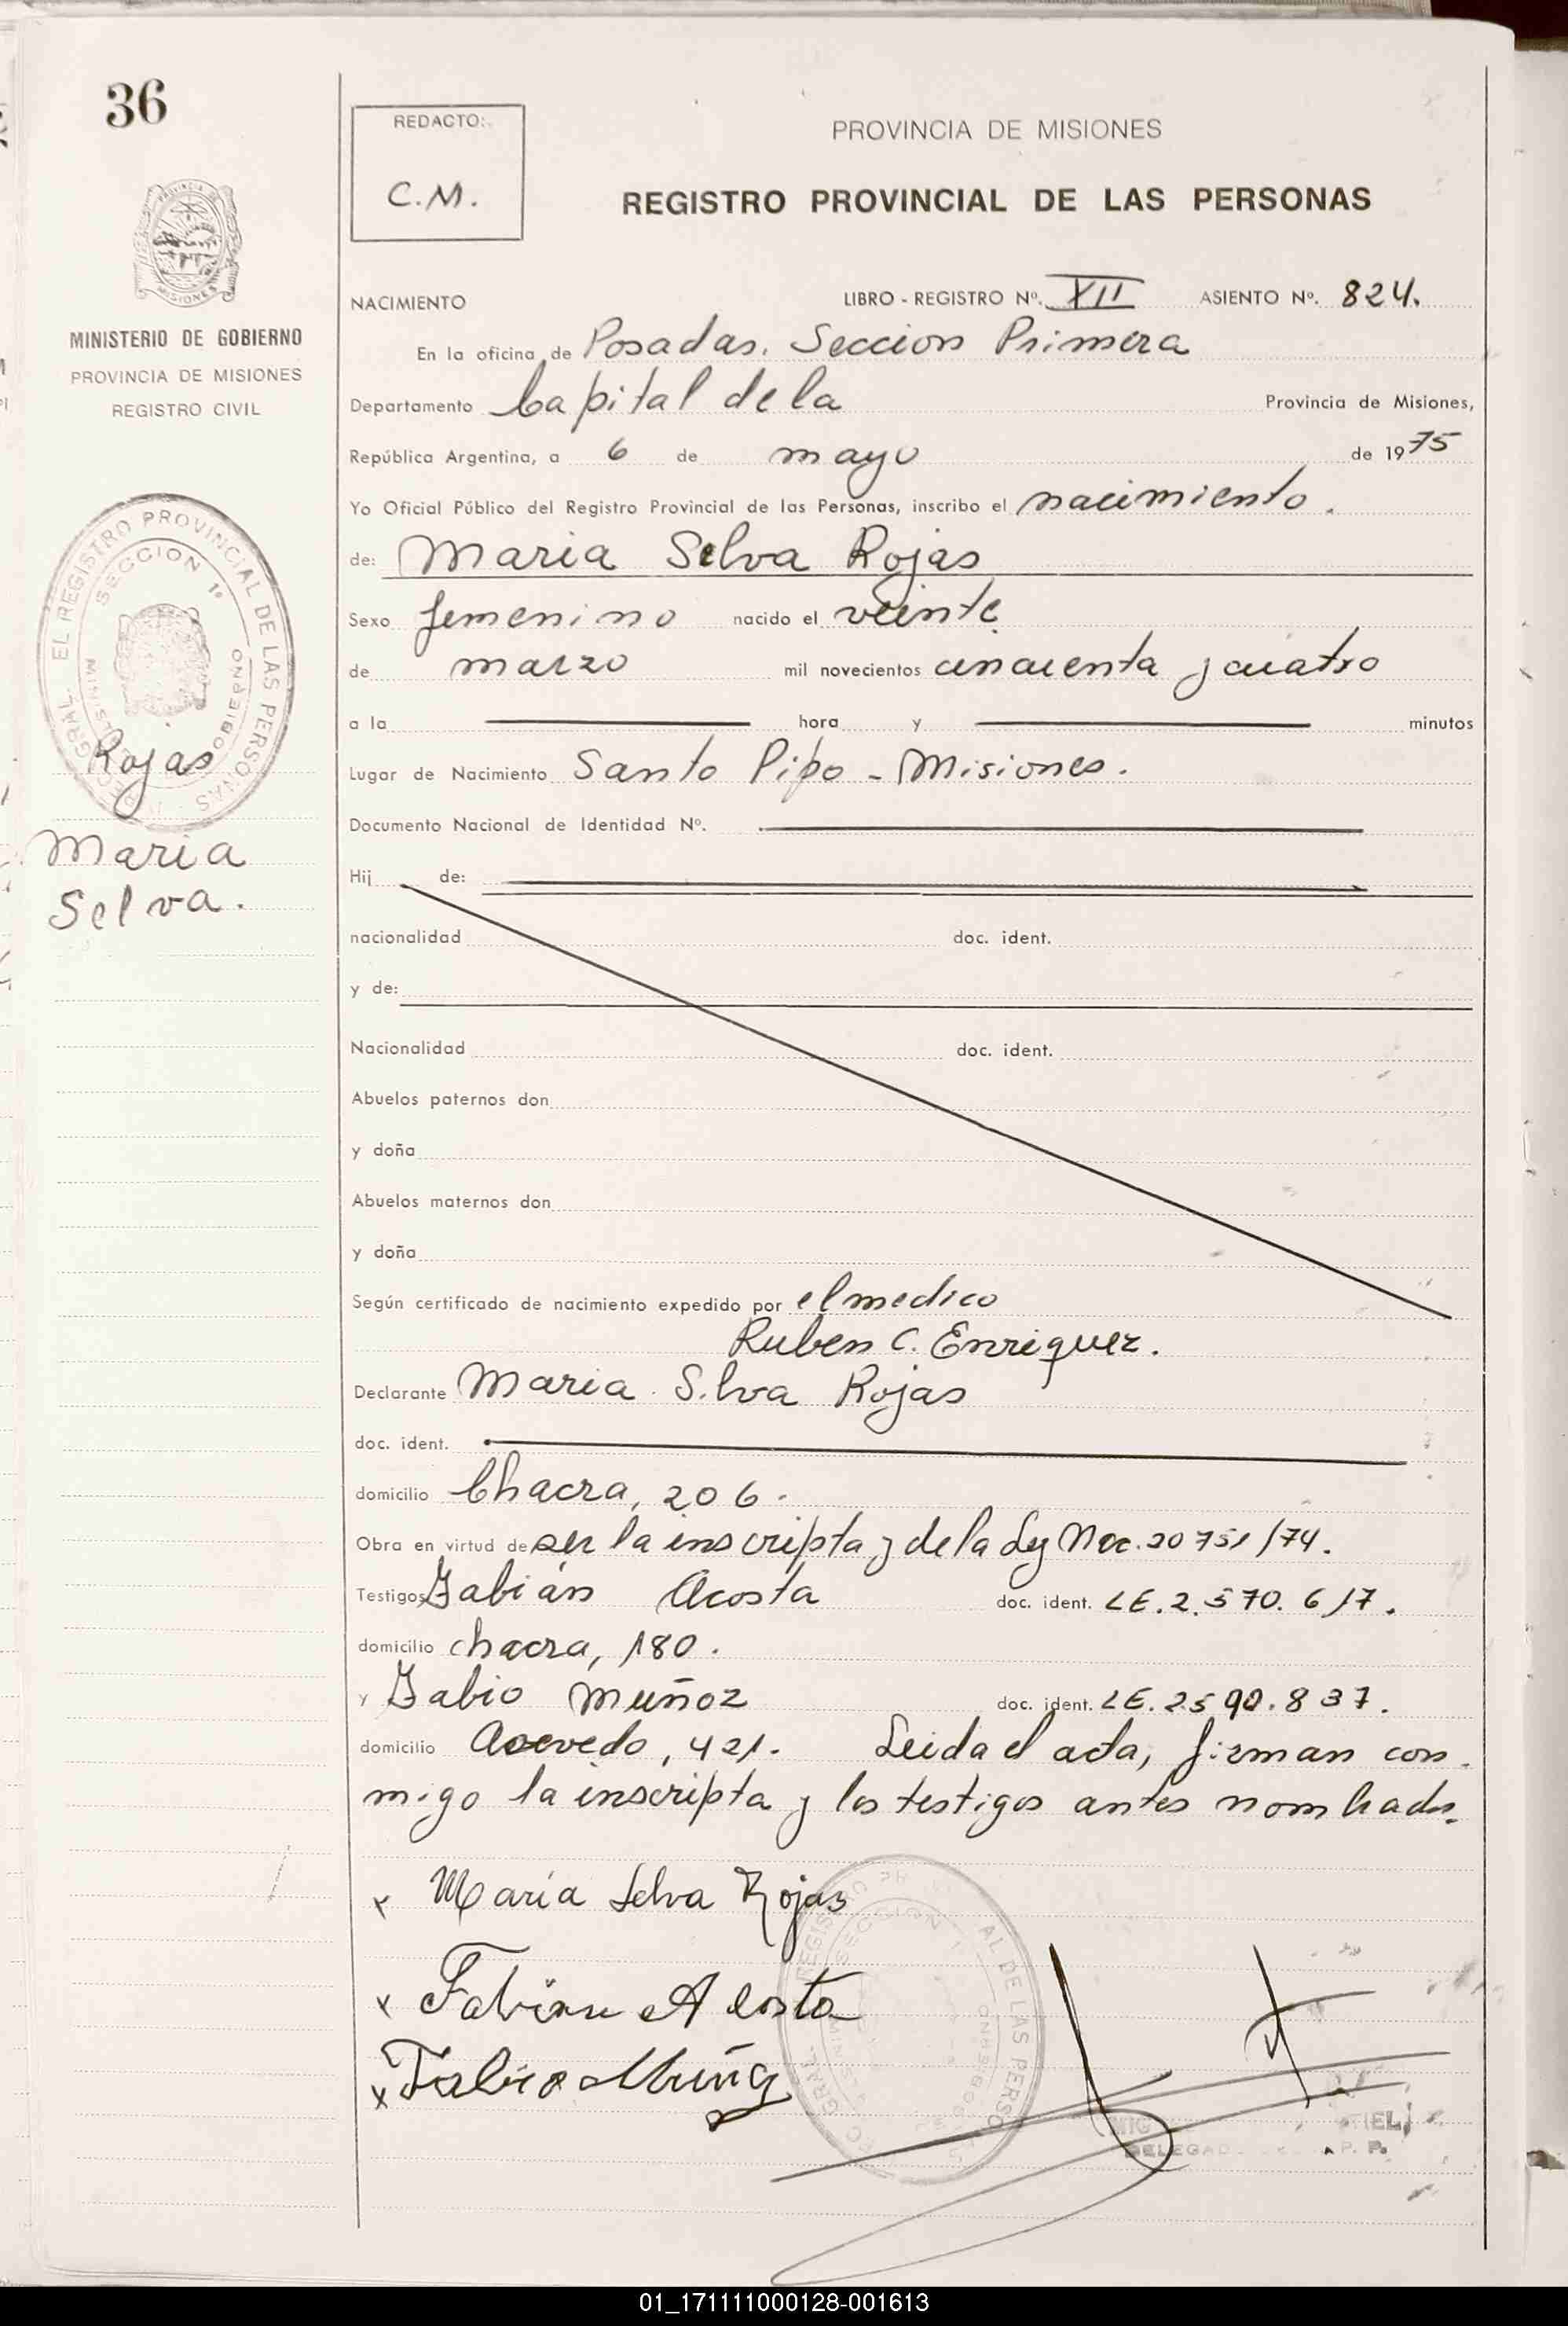 36
REDACTO:
C.M.
PROVINCIA DE MISIONES
REGISTRO PROVINCIAL DE LAS PERSONAS
MISIONES
MINISTERIO DE GOBIERNO
PROVINCIA DE MISIONES
REGISTRO CIVIL
NACIMIENTO
LIBRO - REGISTRO Nº. XII ASIENTO Nº. 824.
En la oficina de Posadas. Seccion Primera
Departamento Capital de la Provincia de Misiones,
República Argentina, a 6 de mayo de 1975
Yo Oficial Público del Registro Provincial de las Personas, inscribo el nacimiento.
de: Maria Selva Rojas
Sexo femenino nacido el veinte
de marzo mil novecientos cincuenta y cuatro
a la hora y minutos
Lugar de Nacimiento Santo Pipo - Misiones.
Documento Nacional de Identidad Nº.
Hij de:
nacionalidad doc. ident.
y de:
Nacionalidad doc. ident.
Abuelos paternos don
y doña
Abuelos maternos don
y doña
Según certificado de nacimiento expedido por el medico
Ruben C. Enriquez.
Declarante Maria Silva Rojas
doc. ident.
domicilio Chacra, 206.
Obra en virtud de ser la inscripta y de la Ley Nac. 20751/74.
Testigos Fabián Acosta doc. ident. LE. 2.570.617.
domicilio chacra, 180.
y Fabio Muñoz doc. ident. LE. 2590.837.
domicilio Acevedo, 421. Leida el acta, firman con-
migo la inscripta y los testigos antes nombrados.
x Maria Selva Rojas
x Fabian Acosta
x Fabio Muñoz
EL REGISTRO PROVINCIAL DE LAS PERSONAS
SECCION 1º
Rojas
Maria
Selva.
01_171111000128-001613